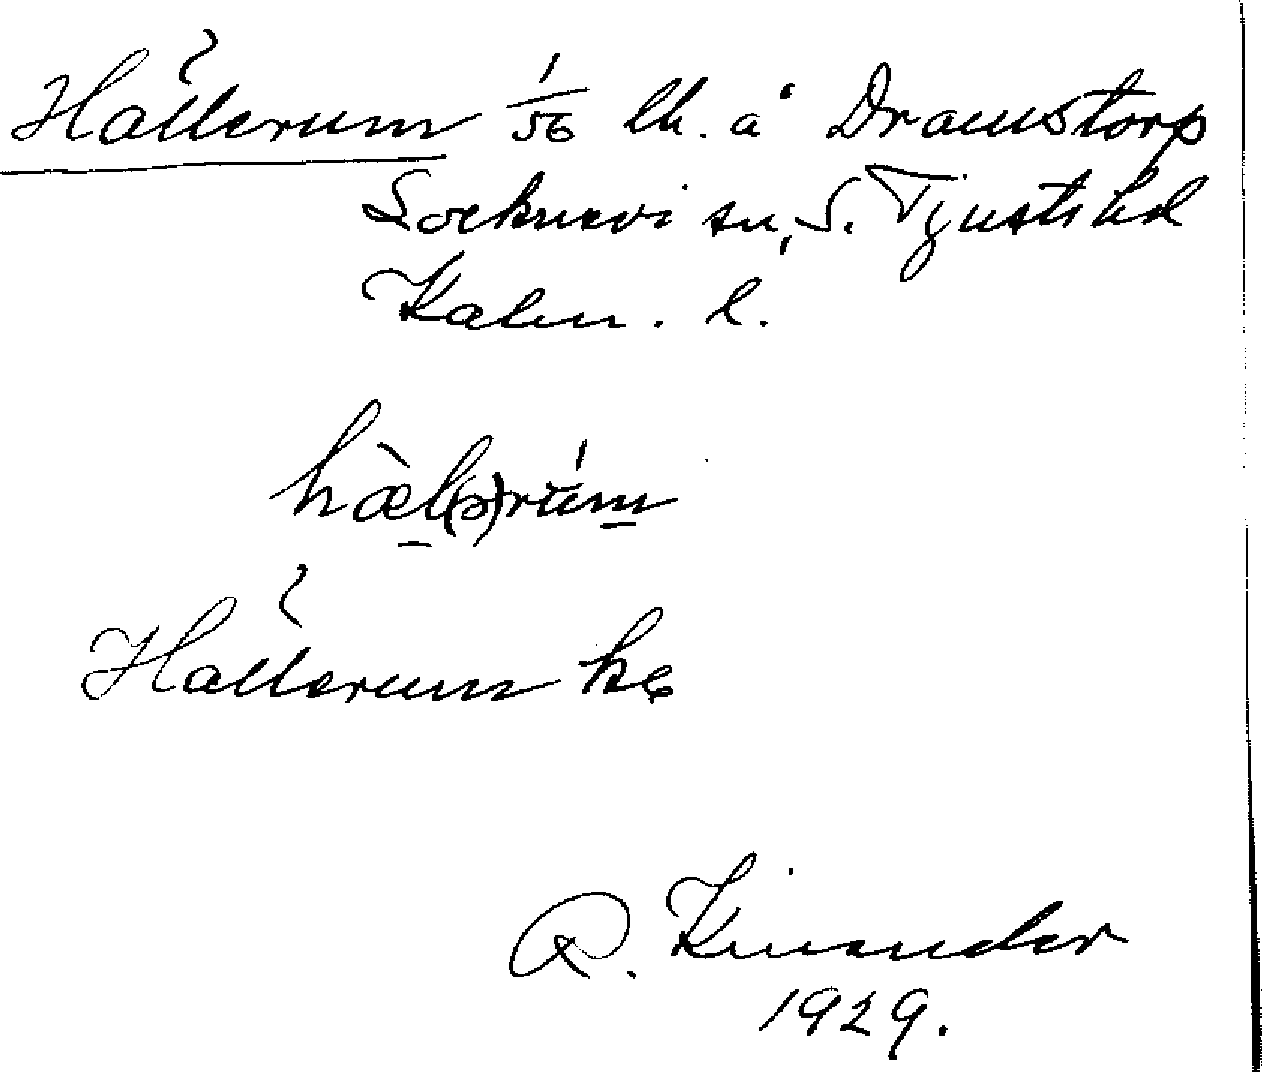 Hällerum 1/56 lh. å Dramstorp
Locknevi sn, S. Tjusts hd
Kalm. l.
hæ̀l(ə)rùm
Hällerum
R. Kinander
1929.